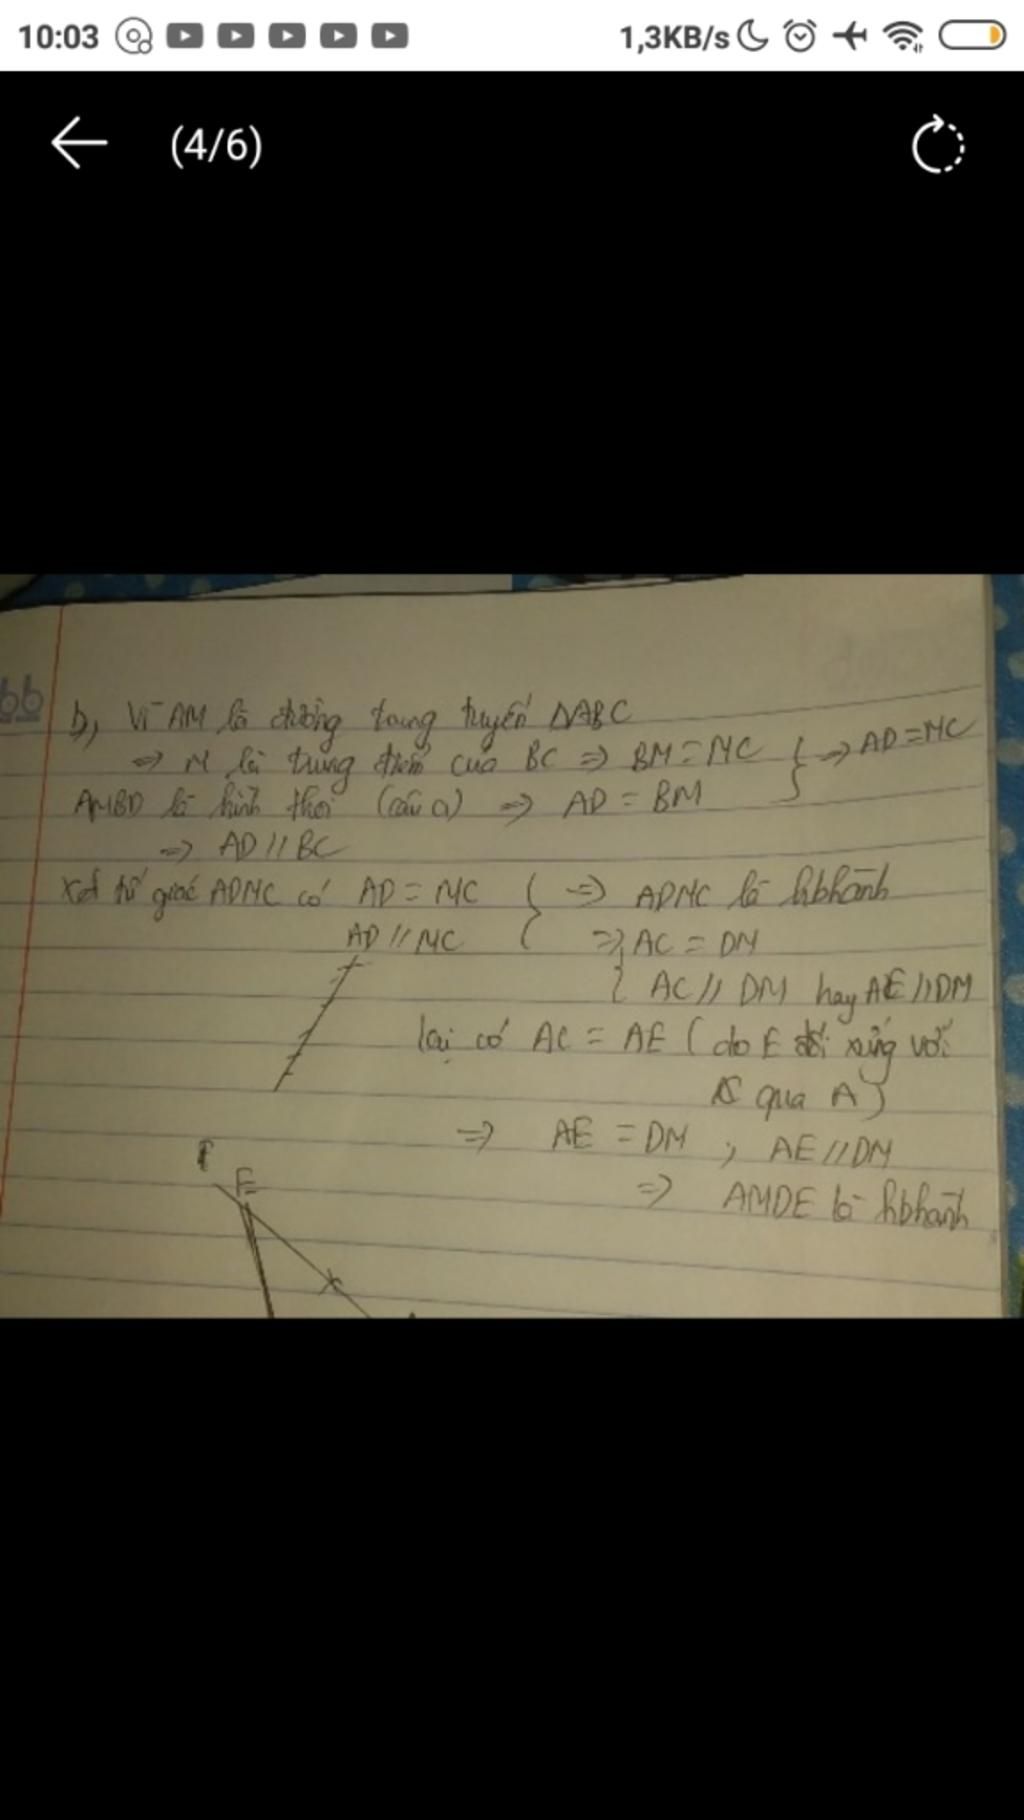 10:03
1,3KB/s
(4/6)
b, Vì AM là đường trung tuyến ΔABC
=> M là trung điểm của BC => BM = MC } => AD = MC
AMBD là hình thoi (câu a) => AD = BM
=> AD // BC
Xét tứ giác ADMC có AD = MC } => ADMC là hbhành
AD // MC
=> { AC = DM
AC // DM hay AE // DM
lại có AC = AE ( do E đối xứng với
C qua A )
=> AE = DM , AE // DM
=> AMDE là hbhành
E